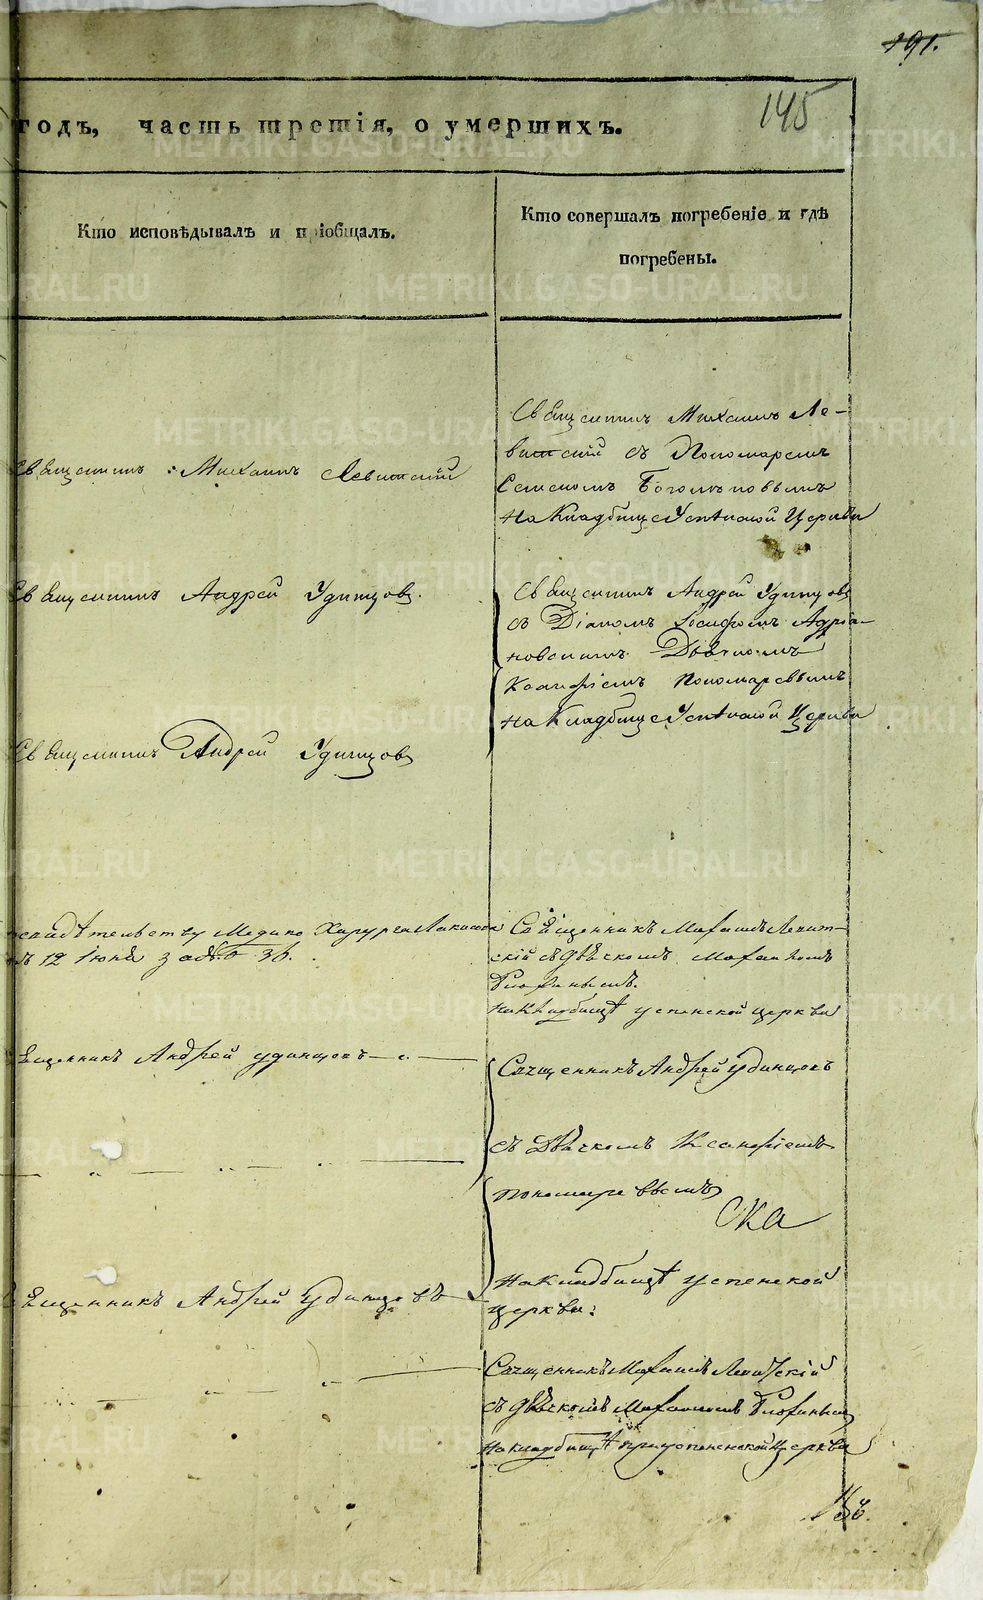 191.
145
годъ, часть третія, о умершихъ.
Кто исповѣдывалъ и пріобщалъ.
Кто совершалъ погребеніе и гдѣ
погребены.
Священникъ Михаилъ Ле-
витскій съ Пономаремъ
Священникъ Михаилъ Левитскій
На Кладбище Успенской Церкви
Священникъ Андрей Удинцовъ.
Священникъ Андрей Удинцовъ
съ Діакономъ Іосифомъ Адріа-
новскимъ Дьячкомъ
Ксанфіемъ Пономаревымъ
На Кладбище Успенской Церкви
Священникъ Андрей Удинцовъ
свидѣтельству Медико Хирурга
12 Іюня за № 36.
Священникъ Михаилъ Левит-
скій съ дьячкомъ Михаиломъ
На Кладбищѣ успенской церкви
священникъ Андрей удинцовъ
Священникъ Андрей Удинцовъ
съ Дьячкомъ Ксанфіемъ
пономаревымъ
На Кладбищѣ успенской
церкви.
священникъ Андрей Удинцовъ
Священникъ Михаилъ Левитскій
съ дьячкомъ Михаиломъ
на кладбищѣ при успенской Церкви
METRIKI.GASO-URAL.RU